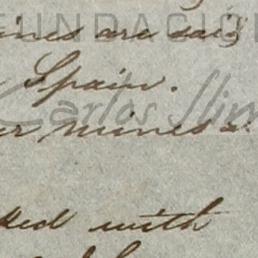 FUNDACIÓ
ines are said
Spain.
Carlos Slim
er mines
ked with